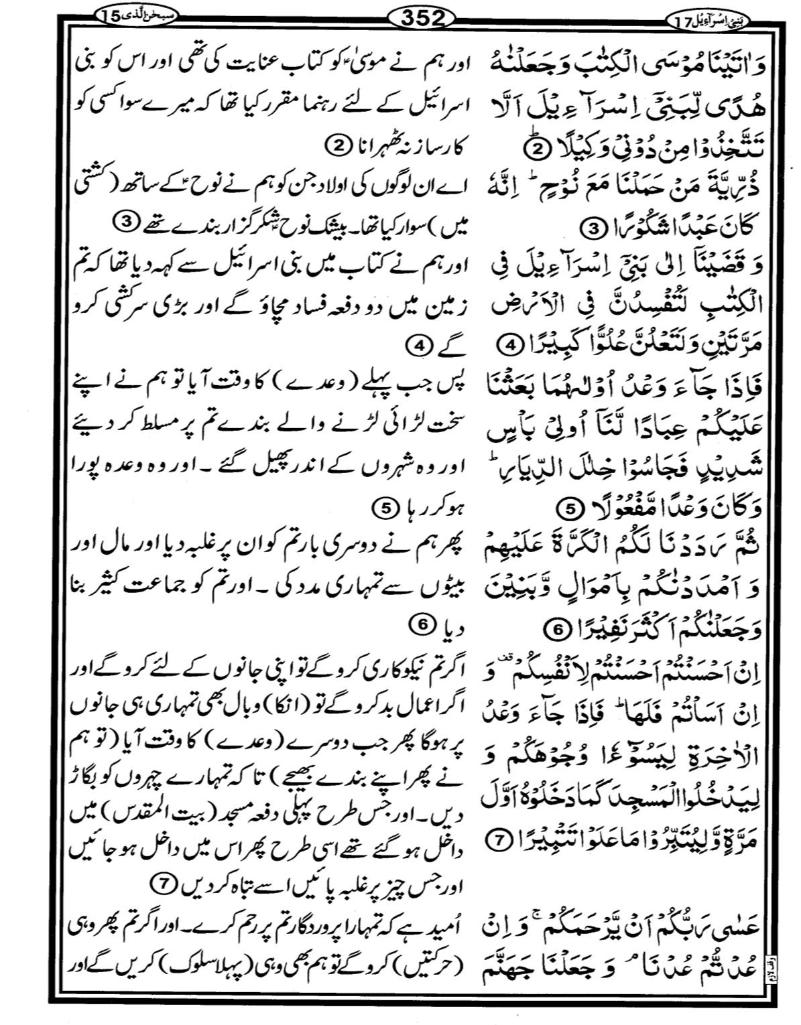 بنی اسرآءیل 17
352
سبحٰن الّذی 15
وَاٰتَيْنَا مُوْسَى الْكِتٰبَ وَجَعَلْنٰهُ
هُدًى لِّبَنِيْٓ اِسْرَآءِيْلَ اَلَّا
تَتَّخِذُوْا مِنْ دُوْنِيْ وَكِيْلًا ؕ ②
ذُرِّيَّةَ مَنْ حَمَلْنَا مَعَ نُوْحٍ ؕ اِنَّهٗ
كَانَ عَبْدًا شَكُوْرًا ③
وَ قَضَيْنَآ اِلٰى بَنِيْٓ اِسْرَآءِيْلَ فِي
الْكِتٰبِ لَتُفْسِدُنَّ فِي الْاَرْضِ
مَرَّتَيْنِ وَلَتَعْلُنَّ عُلُوًّا كَبِيْرًا ④
فَاِذَا جَآءَ وَعْدُ اُوْلٰىهُمَا بَعَثْنَا
عَلَيْكُمْ عِبَادًا لَّنَآ اُولِيْ بَاْسٍ
شَدِيْدٍ فَجَاسُوْا خِلٰلَ الدِّيَارِ ؕ
وَكَانَ وَعْدًا مَّفْعُوْلًا ⑤
ثُمَّ رَدَدْنَا لَكُمُ الْكَرَّةَ عَلَيْهِمْ
وَ اَمْدَدْنٰكُمْ بِاَمْوَالٍ وَّبَنِيْنَ
وَجَعَلْنٰكُمْ اَكْثَرَ نَفِيْرًا ⑥
اِنْ اَحْسَنْتُمْ اَحْسَنْتُمْ لِاَنْفُسِكُمْ ۫ وَ
اِنْ اَسَاْتُمْ فَلَهَا ؕ فَاِذَا جَآءَ وَعْدُ
الْاٰخِرَةِ لِيَسُوْٓءٗا وُجُوْهَكُمْ وَ
لِيَدْخُلُوا الْمَسْجِدَ كَمَا دَخَلُوْهُ اَوَّلَ
مَرَّةٍ وَّلِيُتَبِّرُوْا مَا عَلَوْا تَتْبِيْرًا ⑦
عَسٰى رَبُّكُمْ اَنْ يَّرْحَمَكُمْ ۚ وَ اِنْ
عُدْتُّمْ عُدْنَا ۘ وَ جَعَلْنَا جَهَنَّمَ
وقف لازم
اور ہم نے موسٰیؑ کو کتاب عنایت کی تھی اور اس کو بنی
اسرائیل کے لئے رہنما مقرر کیا تھا کہ میرے سوا کسی کو
کارساز نہ ٹھہرانا ②
اے ان لوگوں کی اولاد جن کو ہم نے نوح ؑ کے ساتھ (کشتی
میں) سوار کیا تھا۔ بیشک نوح ؑ شکر گزار بندے تھے ③
اور ہم نے کتاب میں بنی اسرائیل سے کہہ دیا تھا کہ تم
زمین میں دو دفعہ فساد مچاؤ گے اور بڑی سرکشی کرو
گے ④
پس جب پہلے (وعدے) کا وقت آیا تو ہم نے اپنے
سخت لڑائی لڑنے والے بندے تم پر مسلط کر دیئے
اور وہ شہروں کے اندر پھیل گئے۔ اور وہ وعدہ پورا
ہو کر رہا ⑤
پھر ہم نے دوسری بار تم کو ان پر غلبہ دیا اور مال اور
بیٹوں سے تمہاری مدد کی۔ اور تم کو جماعت کثیر بنا
دیا ⑥
اگر تم نیکوکاری کرو گے تو اپنی جانوں کے لئے کرو گے اور
اگر اعمال بد کرو گے تو (انکا) وبال بھی تمہاری ہی جانوں
پر ہوگا پھر جب دوسرے (وعدے) کا وقت آیا (تو ہم
نے پھر اپنے بندے بھیجے) تا کہ تمہارے چہروں کو بگاڑ
دیں۔ اور جس طرح پہلی دفعہ مسجد (بیت المقدس) میں
داخل ہو گئے تھے اسی طرح پھر اس میں داخل ہو جائیں
اور جس چیز پر غلبہ پائیں اسے تباہ کر دیں ⑦
اُمید ہے کہ تمہارا پروردگار تم پر رحم کرے۔ اور اگر تم پھر وہی
(حرکتیں) کرو گے تو ہم بھی وہی (پہلا سلوک) کریں گے اور